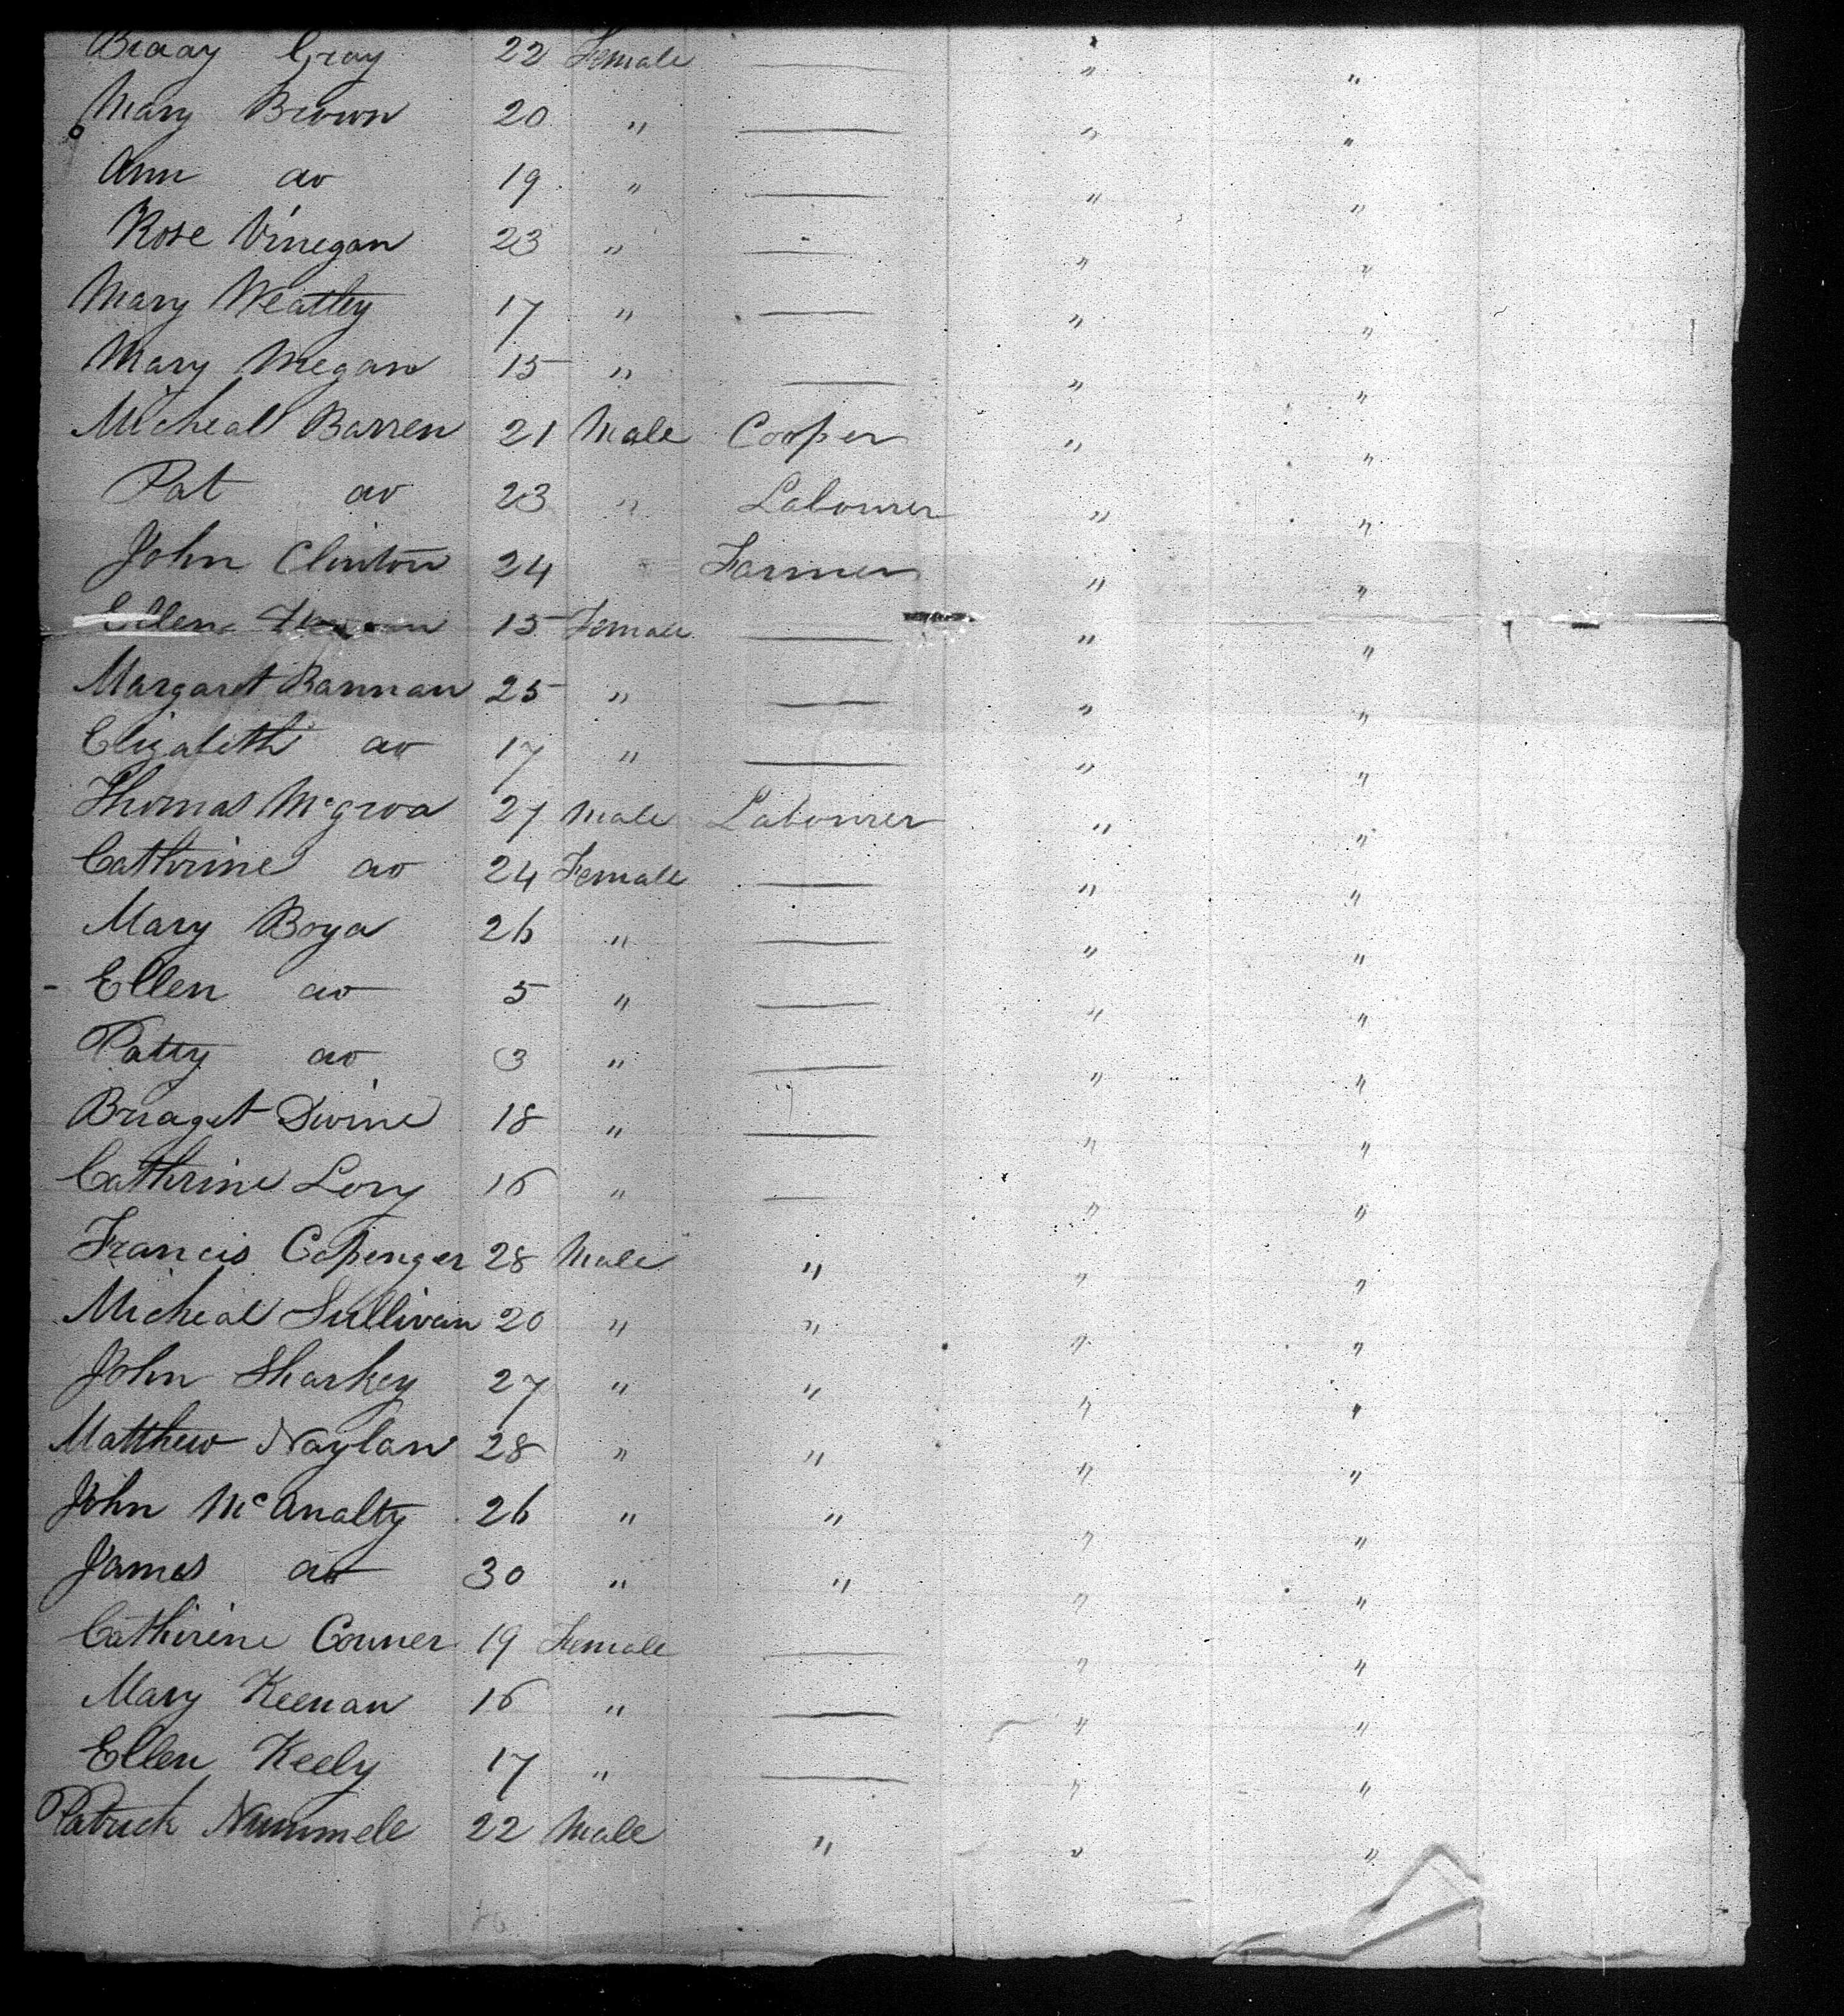 Brady Gray 22 Female — " "
Mary Brown 20 " — " "
Ann do 19 " — " "
Rose Vinegan 23 " — " "
Mary Weatley 17 " — " "
Mary Megan 15 " — " "
Micheal Barren 21 Male Cooper " "
Pat do 23 " Labourer " "
John Clinton 24 Farmer " "
Ellen 15 Female — " "
Margaret Bannan 25 " — " "
Elizabeth do 17 " — " "
Thomas McGroa 27 Male Labourer " "
Cathrine do 24 Female — " "
Mary Boyd 26 " — " "
Ellen do 5 " — " "
Patty do 3 " — " "
Bridget Divine 18 " — " "
Cathrine Lory 16 " — " "
Francis Copenger 28 Male " " "
Micheal Sullivan 20 " " " "
John Sharkey 27 " " " "
Matthew Naylan 28 " " " "
John McAnalty 26 " " " "
James do 30 " " " "
Catherine Conner 19 Female — " "
Mary Keenan 16 " — " "
Ellen Keely 17 " — " "
Patrick Nummele 22 Male " " "